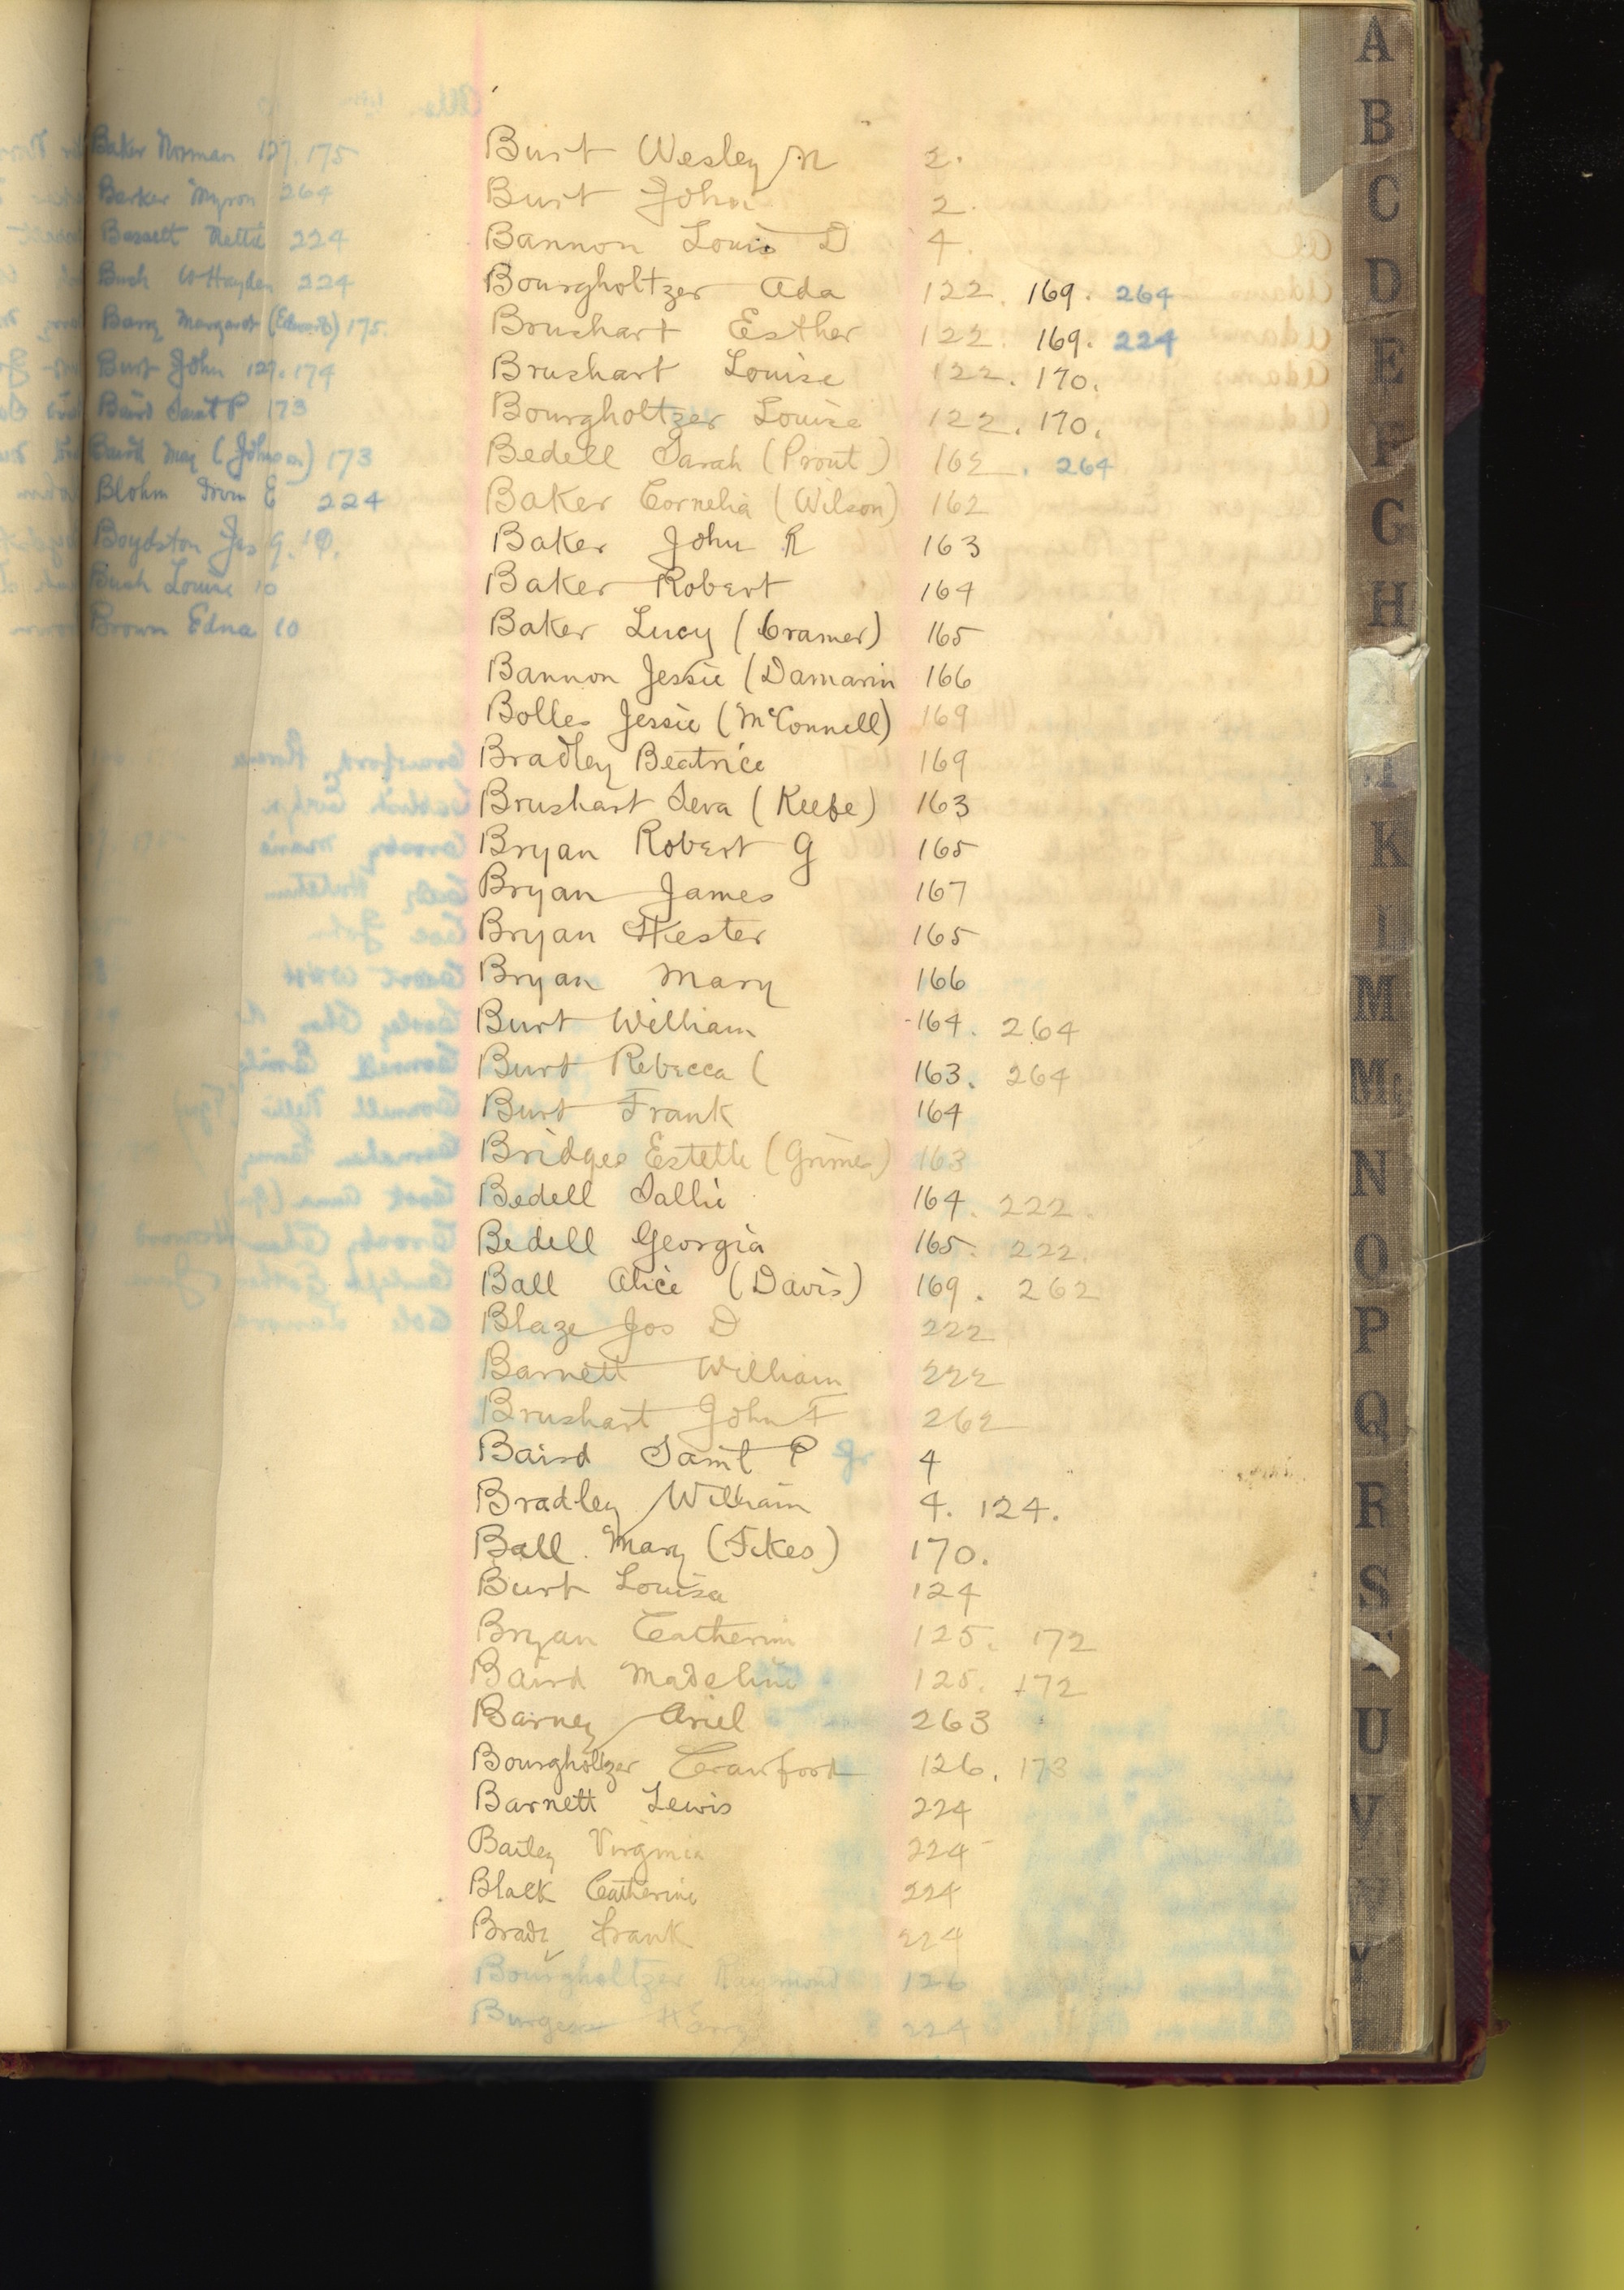 Baker Norman 127. 175
Barker Myron 264
Bassett Nettie 224
Bush W Hayden 224
Barry Margaret (Edwards) 175.
Burt John 127. 174
Baird Saml P 173
Baird May (Johnson) 173
Blohm Irvin E 224
Boydston Jas G. 10.
Bush Louise 10
Brown Edna 10
Burt Wesley M 2.
Burt John 2.
Bannon Louis D 4.
Bourgholtzer Ada 122. 169. 264
Brushart Esther 122. 169. 224
Brushart Louise 122. 170.
Bourgholtzer Louise 122. 170.
Bedell Sarah (Prout) 162. 264
Baker Cornelia (Wilson) 162
Baker John R 163
Baker Robert 164
Baker Lucy (Cramer) 165
Bannon Jessie (Damarin 166
Bolles Jessie (McConnell) 169
Bradley Beatrice 169
Brushart Seva (Keebe) 163
Bryan Robert G 165
Bryan James 167
Bryan Hester 165
Bryan Mary 166
Burt William 164. 264
Burt Rebecca ( 163. 264
Burt Frank 164
Bridges Estelle (Grimes) 163
Bedell Sallie 164. 222.
Bedell Georgia 165. 222.
Ball Alice (Davis) 169. 262
Blaze Jos D 222
Barnett William 222
Brushart John F 262
Baird Saml P Jr 4
Bradley William 4. 124.
Ball. Mary (Fikes) 170.
Burt Louisa 124
Bryan Catherine 125. 172
Baird Madeline 125. 172
Barney Ariel 263
Bourgholtzer Crawford 126. 173
Barnett Lewis 224
Bailey Virginia 224
Black Catherine 224
Brady Frank 224
Bourgholtzer Raymond 126
Burgess Harry 224
A
B
C
D
E
F
G
H
K
L
M
Mc
N
O
P
Q
R
S
U
V
W
Y